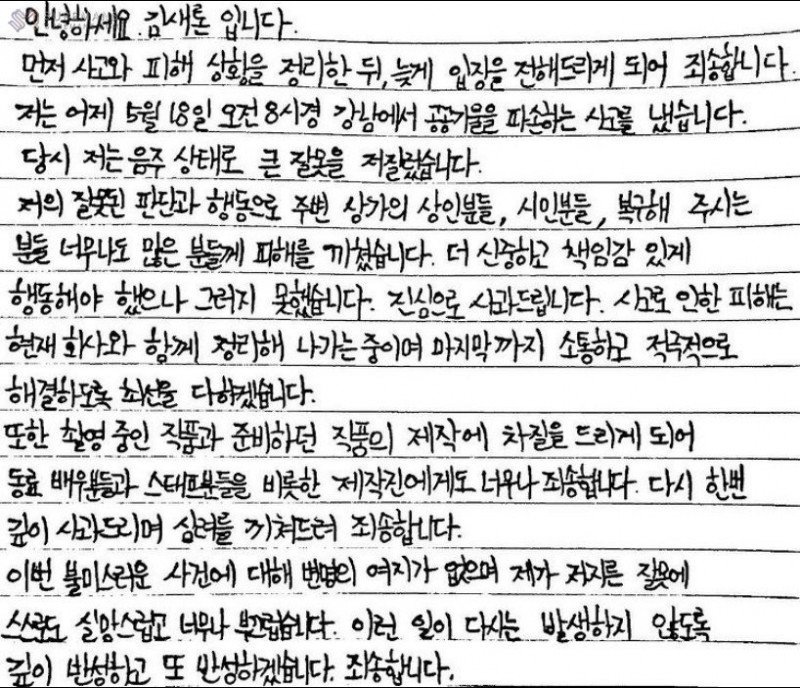 안녕하세요 김새론 입니다.
먼저 사고와 피해 상황을 정리한 뒤, 늦게 입장을 전해드리게 되어 죄송합니다.
저는 어제 5월 18일 오전 8시경 강남에서 공공기물을 파손하는 사고를 냈습니다.
당시 저는 음주 상태로 큰 잘못을 저질렀습니다.
저의 잘못된 판단과 행동으로 주변 상가의 상인분들, 시민분들, 복구해 주시는
분들 너무나도 많은 분들께 피해를 끼쳤습니다. 더 신중하고 책임감 있게
행동해야 했으나 그러지 못했습니다. 진심으로 사과드립니다. 사고로 인한 피해는
현재 회사와 함께 정리해 나가는 중이며 마지막까지 소통하고 적극적으로
해결하도록 최선을 다하겠습니다.
또한 촬영 중인 작품과 준비하던 작품의 제작에 차질을 드리게 되어
동료 배우분들과 스태프분들을 비롯한 제작진에게도 너무나 죄송합니다. 다시 한번
깊이 사과드리며 심려를 끼쳐드려 죄송합니다.
이번 불미스러운 사건에 대해 변명의 여지가 없으며 제가 저지른 잘못에
스스로도 실망스럽고 너무나 부끄럽습니다. 이런 일이 다시는 발생하지 않도록
깊이 반성하고 또 반성하겠습니다. 죄송합니다.